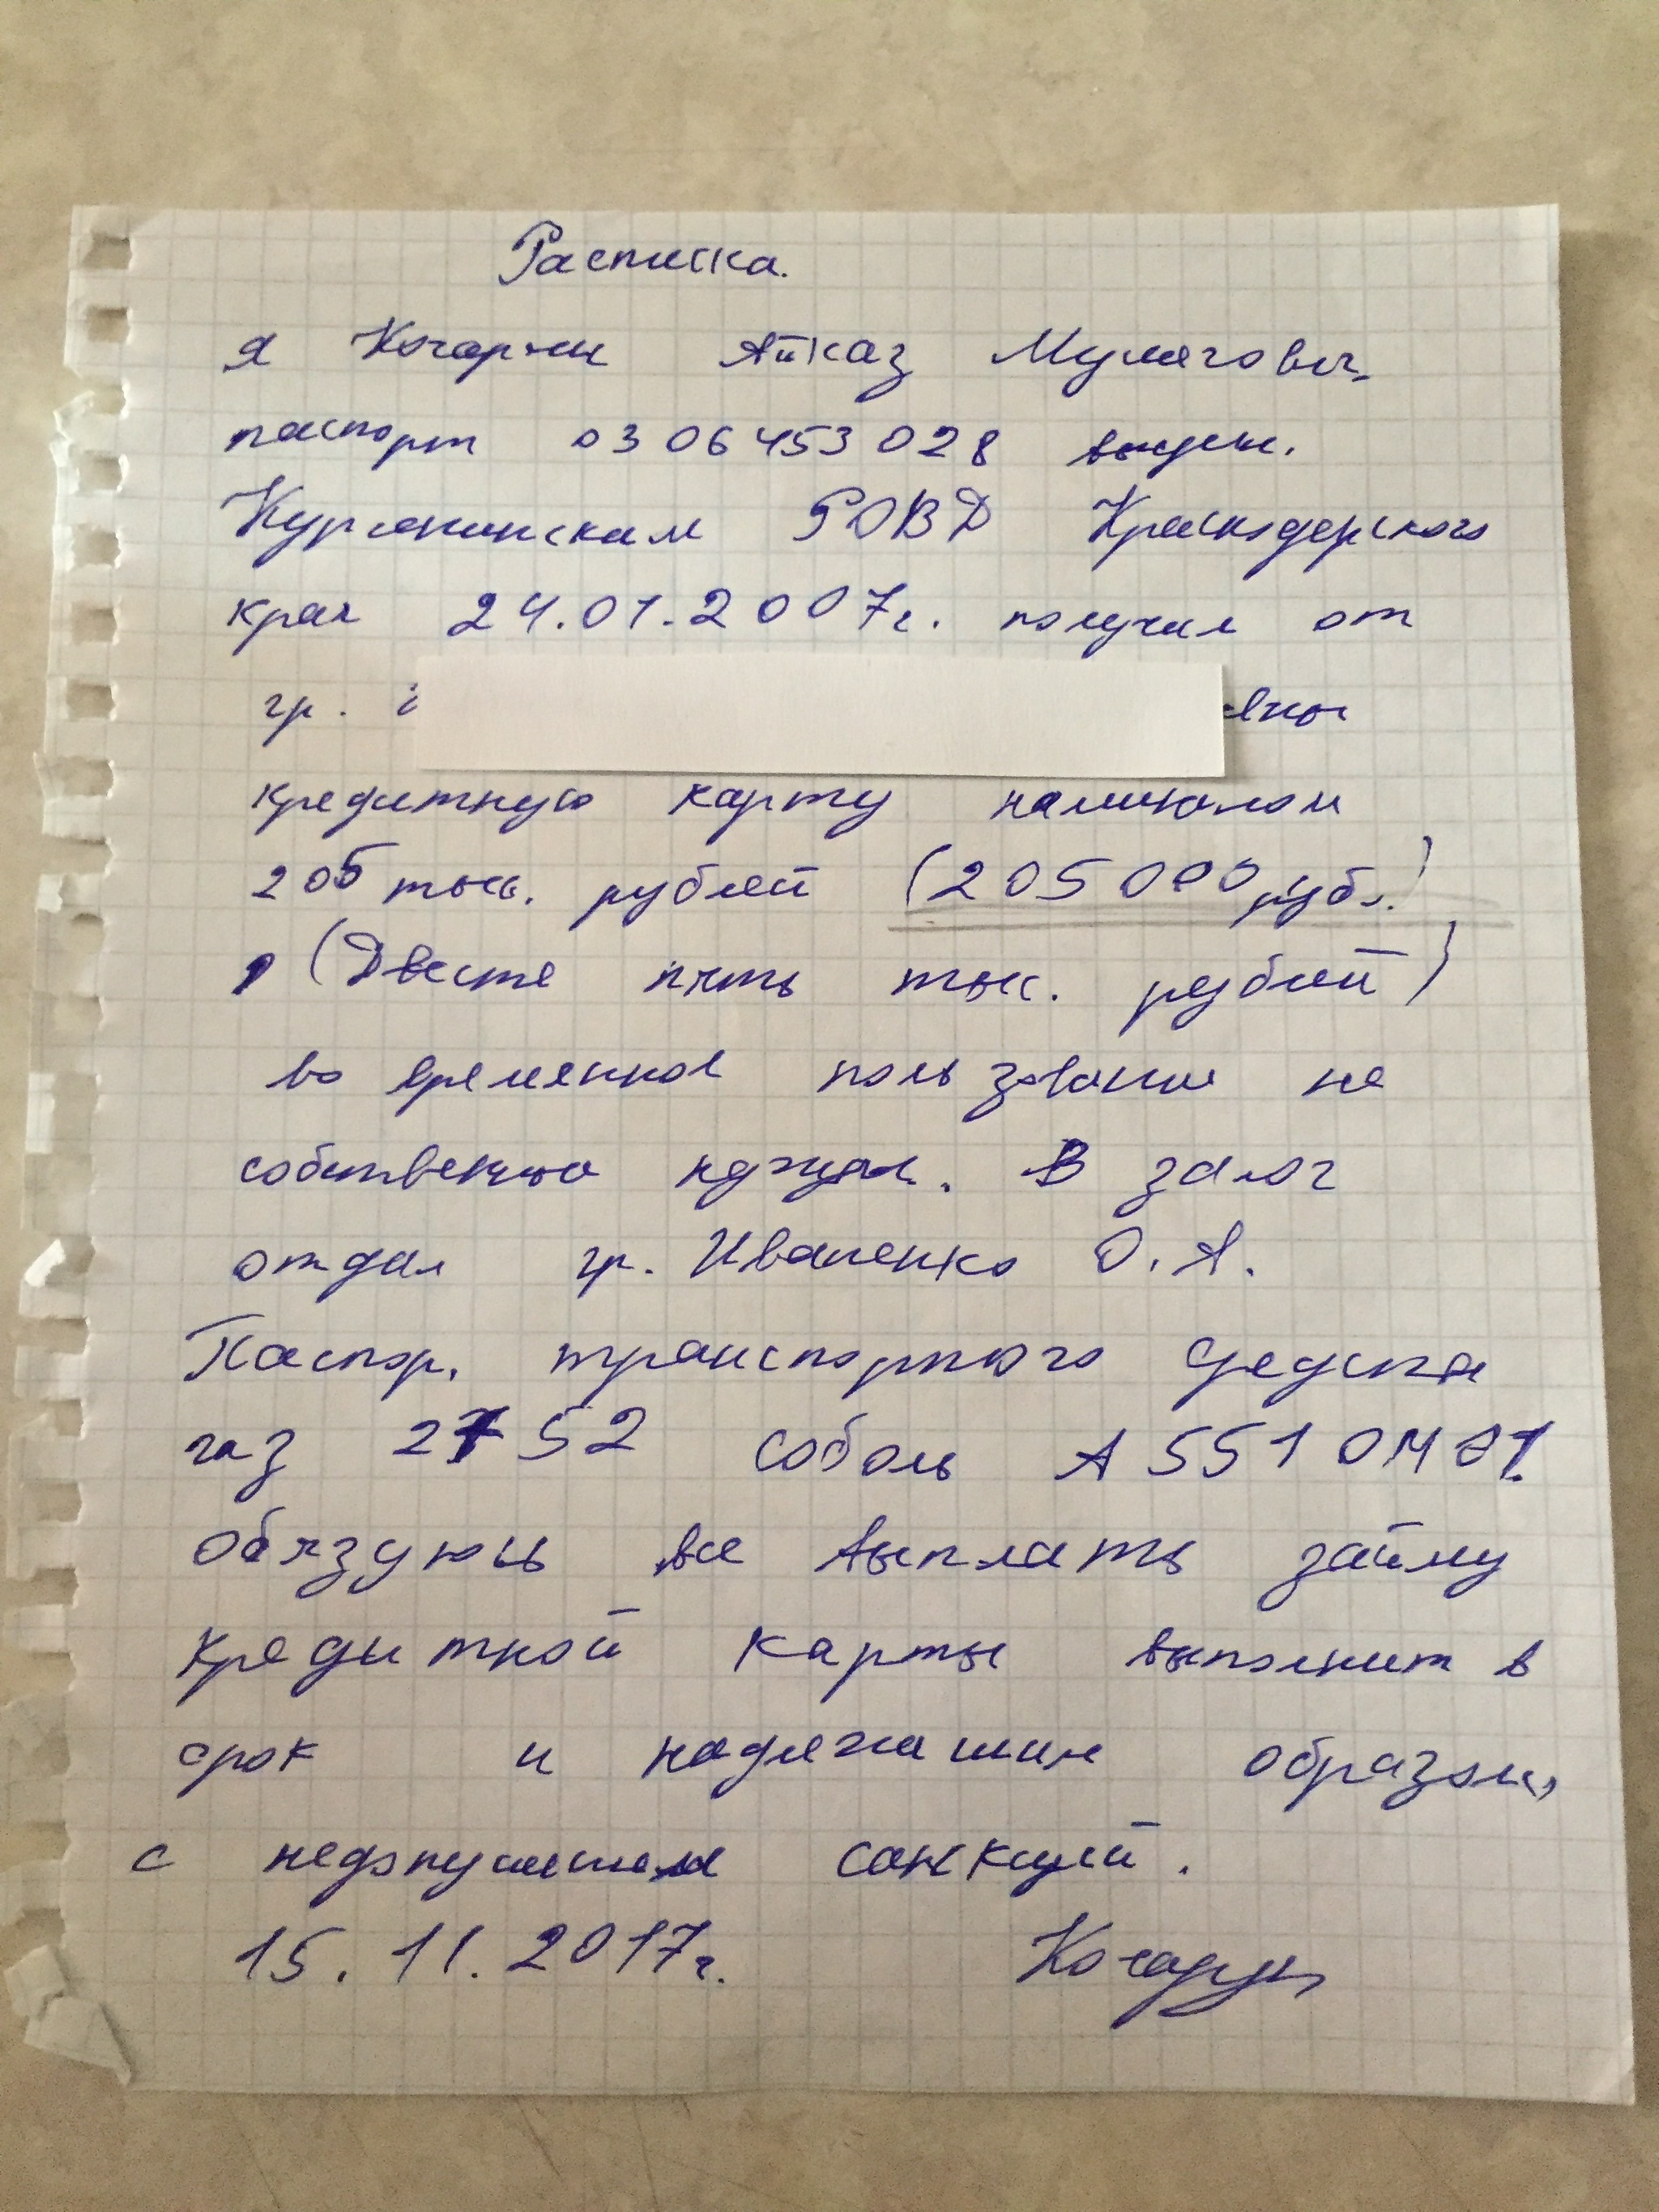 Расписка.
Я Кочарян Айказ
паспорт 0306453028 выдан.
Курганинским РОВД Краснодарского
края 24.01.2007г. получил от
гр. вны
кредитную карту наминалом
205 тыс. рублей (205000 рубл.)
(Двести пять тыс. рублей)
во временное пользование на
собственые нужды. В залог
отдал гр. Иваненко О.А.
Паспор. транспортного средства
газ 2752 соболь А551ОМ 01.
Обязуюсь все выплаты займу
кредитной карты выполнит в
срок и надлежашим образом,
с недопушением санкций.
15.11.2017г. Кочарян